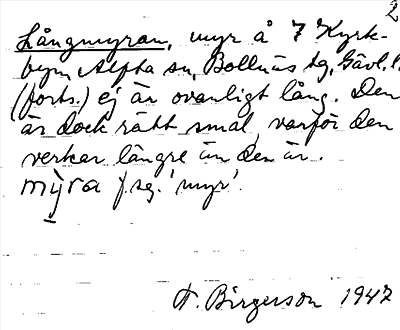 2
Långmyran, myr å 7 Kyrk-
byn, Alfta sn, Bollnäs tg, Gävl. l.
(forts.) ej är ovanligt lång. Den
är dock rätt smal, varför den
verkar längre än den är.
myra f. sg. 'myr'.
F. Birgerson 1947